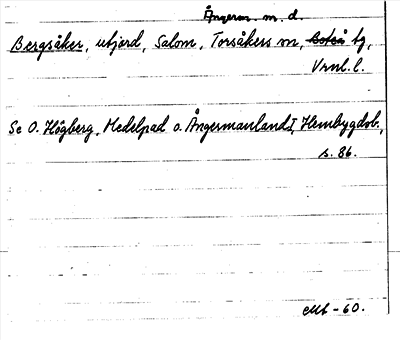 Ångerm. m. d.
Bergsåker, utjord, Salom, Torsåkers sn, Boteå tg,
Vrnl. l.
Se O. Högberg, Medelpad o. Ångermanland I, Hembygdsb.,
s. 86.
-60.